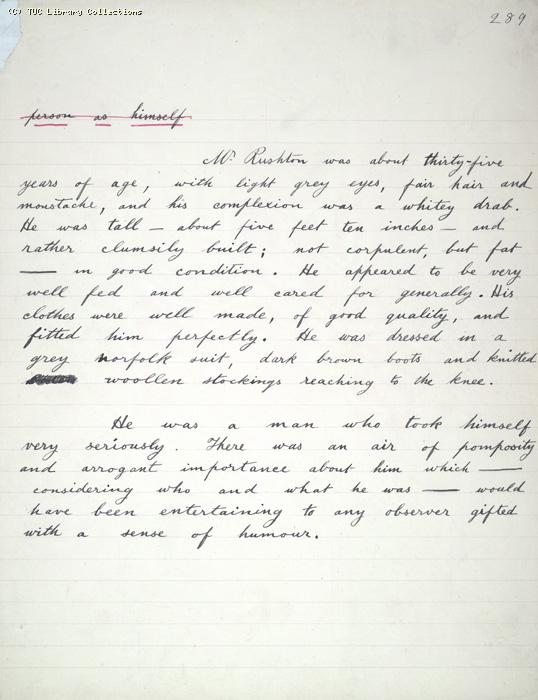 (C) TUC Library Collections
289
person as himself
Mr Rushton was about thirty-five
years of age, with light grey eyes, fair hair and
moustache, and his complexion was a whitey drab.
He was tall — about five feet ten inches — and
rather clumsily built; not corpulent, but fat
— in good condition. He appeared to be very
well fed and well cared for generally. His
clothes were well made, of good quality, and
fitted him perfectly. He was dressed in a
grey norfolk suit, dark brown boots and knitted
woollen stockings reaching to the knee.
He was a man who took himself
very seriously. There was an air of pomposity
and arrogant importance about him which —
considering who and what he was — would
have been entertaining to any observer gifted
with a sense of humour.